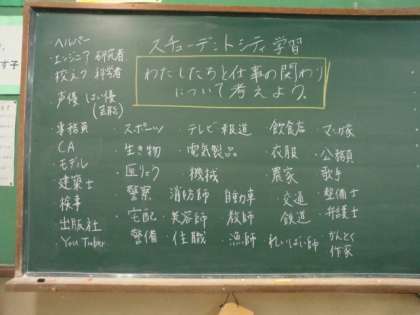 スチューデントシティ学習
わたしたちと仕事の関わり
について考えよう。
ヘルパー
エンジニア 研究者
科学者
・声優 はい優
(芸能)
・事務員
CA
モデル
建築士
検事
出版社
YouTuber
・スポーツ
・生き物
・医りょう
警察
・宅配
警備
・テレビ報道
・電気製品
・機械
消防師
・美容師
・住職
自動車
・教師
・漁師
飲食店
・衣服
・農家
・交通
鉄道
れいばい師
・マンガ家
・公務員
歌手
・整備士
・弁護士
・かんとく
作家
す子